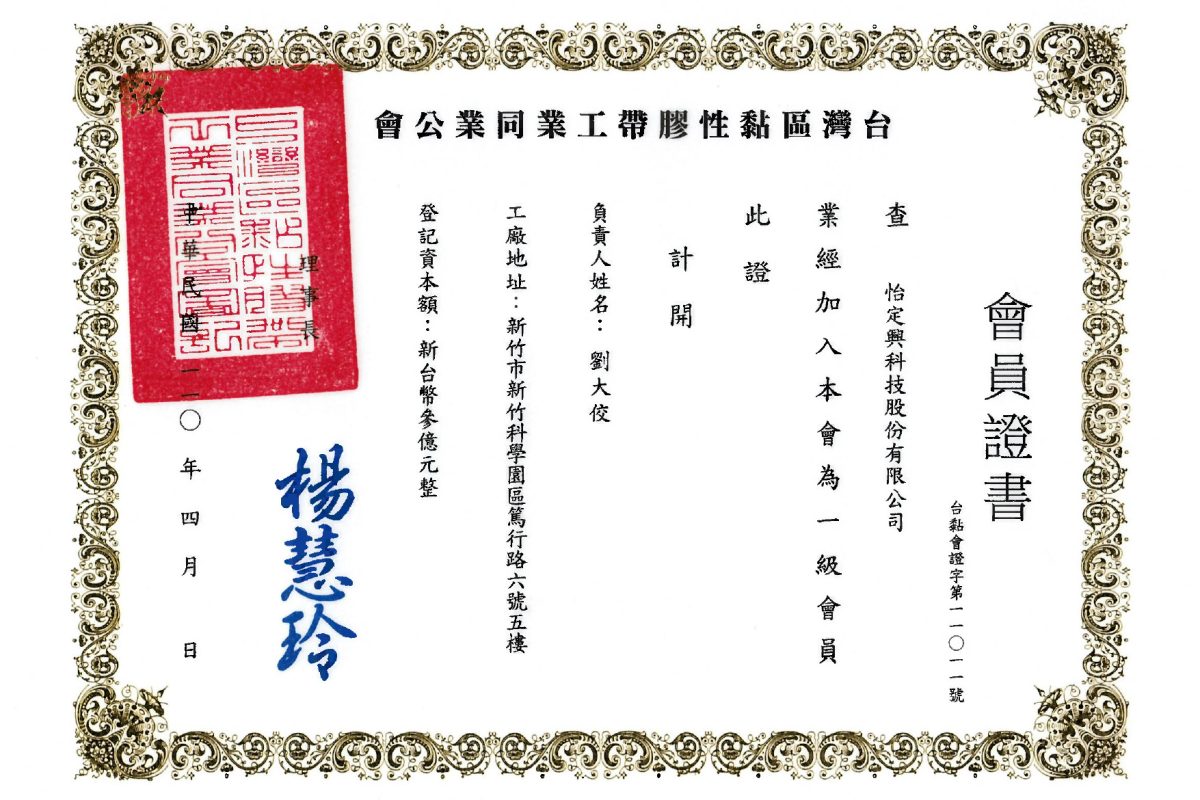 台灣區黏性膠帶工業同業公會
會員證書
台黏會證字第一一〇一一號
查 怡定興科技股份有限公司
業經加入本會為一級會員
此證
計開
負責人姓名：劉大佼
工廠地址：新竹市新竹科學園區篤行路六號五樓
登記資本額：新台幣參億元整
理事長 楊慧玲
中華民國一一〇年四月 日